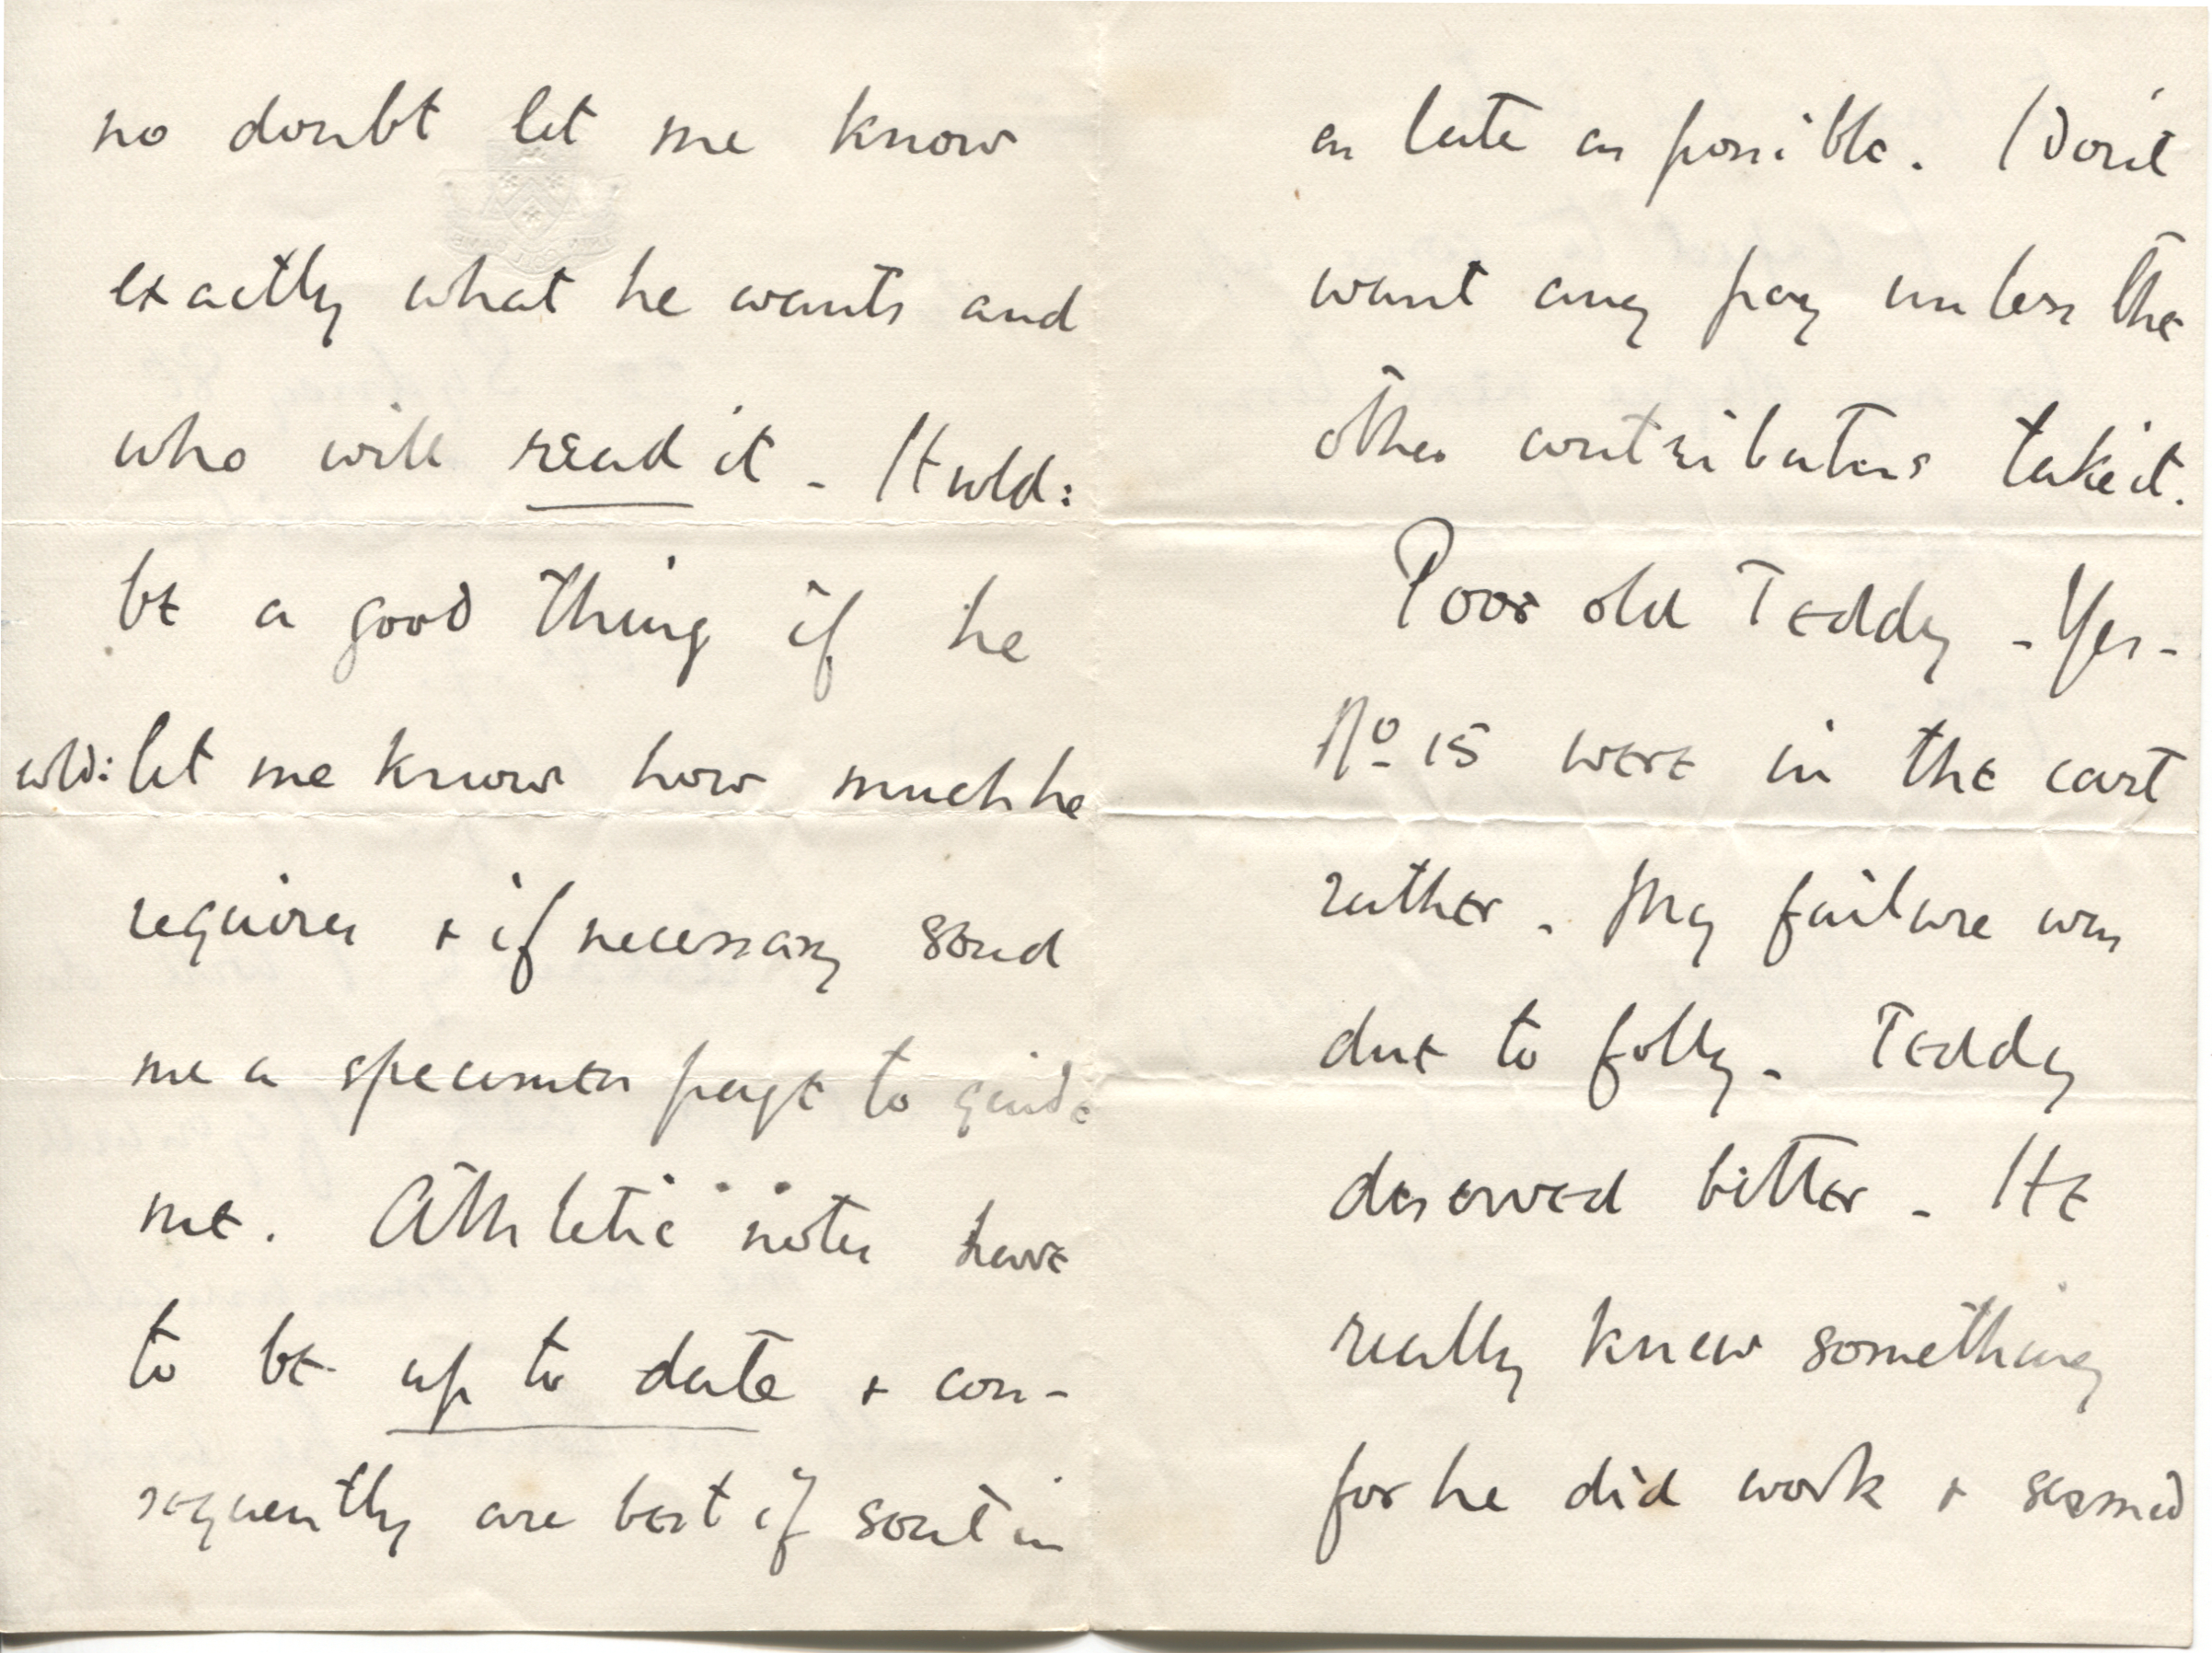 no doubt let me know
exactly what he wants and
who will read it - It wld:
be a good thing if he
wld: let me know how much he
requires + if necessary send
me a specimen page to guide
me. Athletic notes have
to be up to date + con-
sequently are best if sent in
as late as possible. I don't
want any pay unless the
other contributors take it.
Poor old Teddy - Yes -
No 15 were in the cart
rather. My failure was
due to folly. Teddy
deserved better - He
really knew something
for he did work + seemed